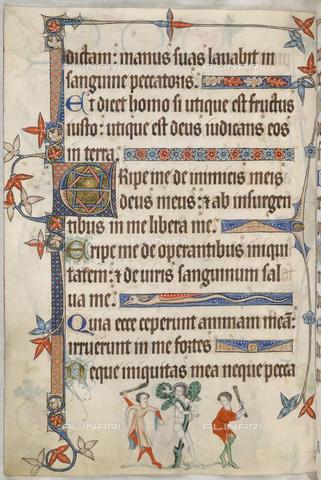 dictam: manus suas lauabit in
sanguine peccatoris.
Et dicet homo si utique est fructus
iusto: utique est deus iudicans eos
in terra.
Eripe me de inimicis meis
deus meus: & ab insurgen
tibus in me libera me.
Eripe me de operantibus iniqui
tatem: & de uiris sanguinum sal
ua me.
Quia ecce ceperunt animam meā:
irruerunt in me fortes
Neque iniquitas mea neque pecca
ALINARI
ALINARI